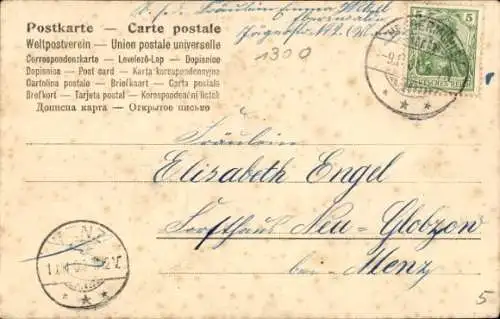 Postkarte — Carte postale
Weltpostverein — Union postale universelle
Correspondenzkarte — Levelező-Lap — Dopisnice
Dopisnica — Post card — Karta korrespondencyjna
Cartolina postale — Briefkaart — Carta postala
Brefkort — Tarjeta postal — Korespondenční lístek
Дописна карта — Открытое письмо
1300
5
Fräulein
Elisabeth Engel
Forsthaus Neu-Globzow
bei Menz
MENZ
5